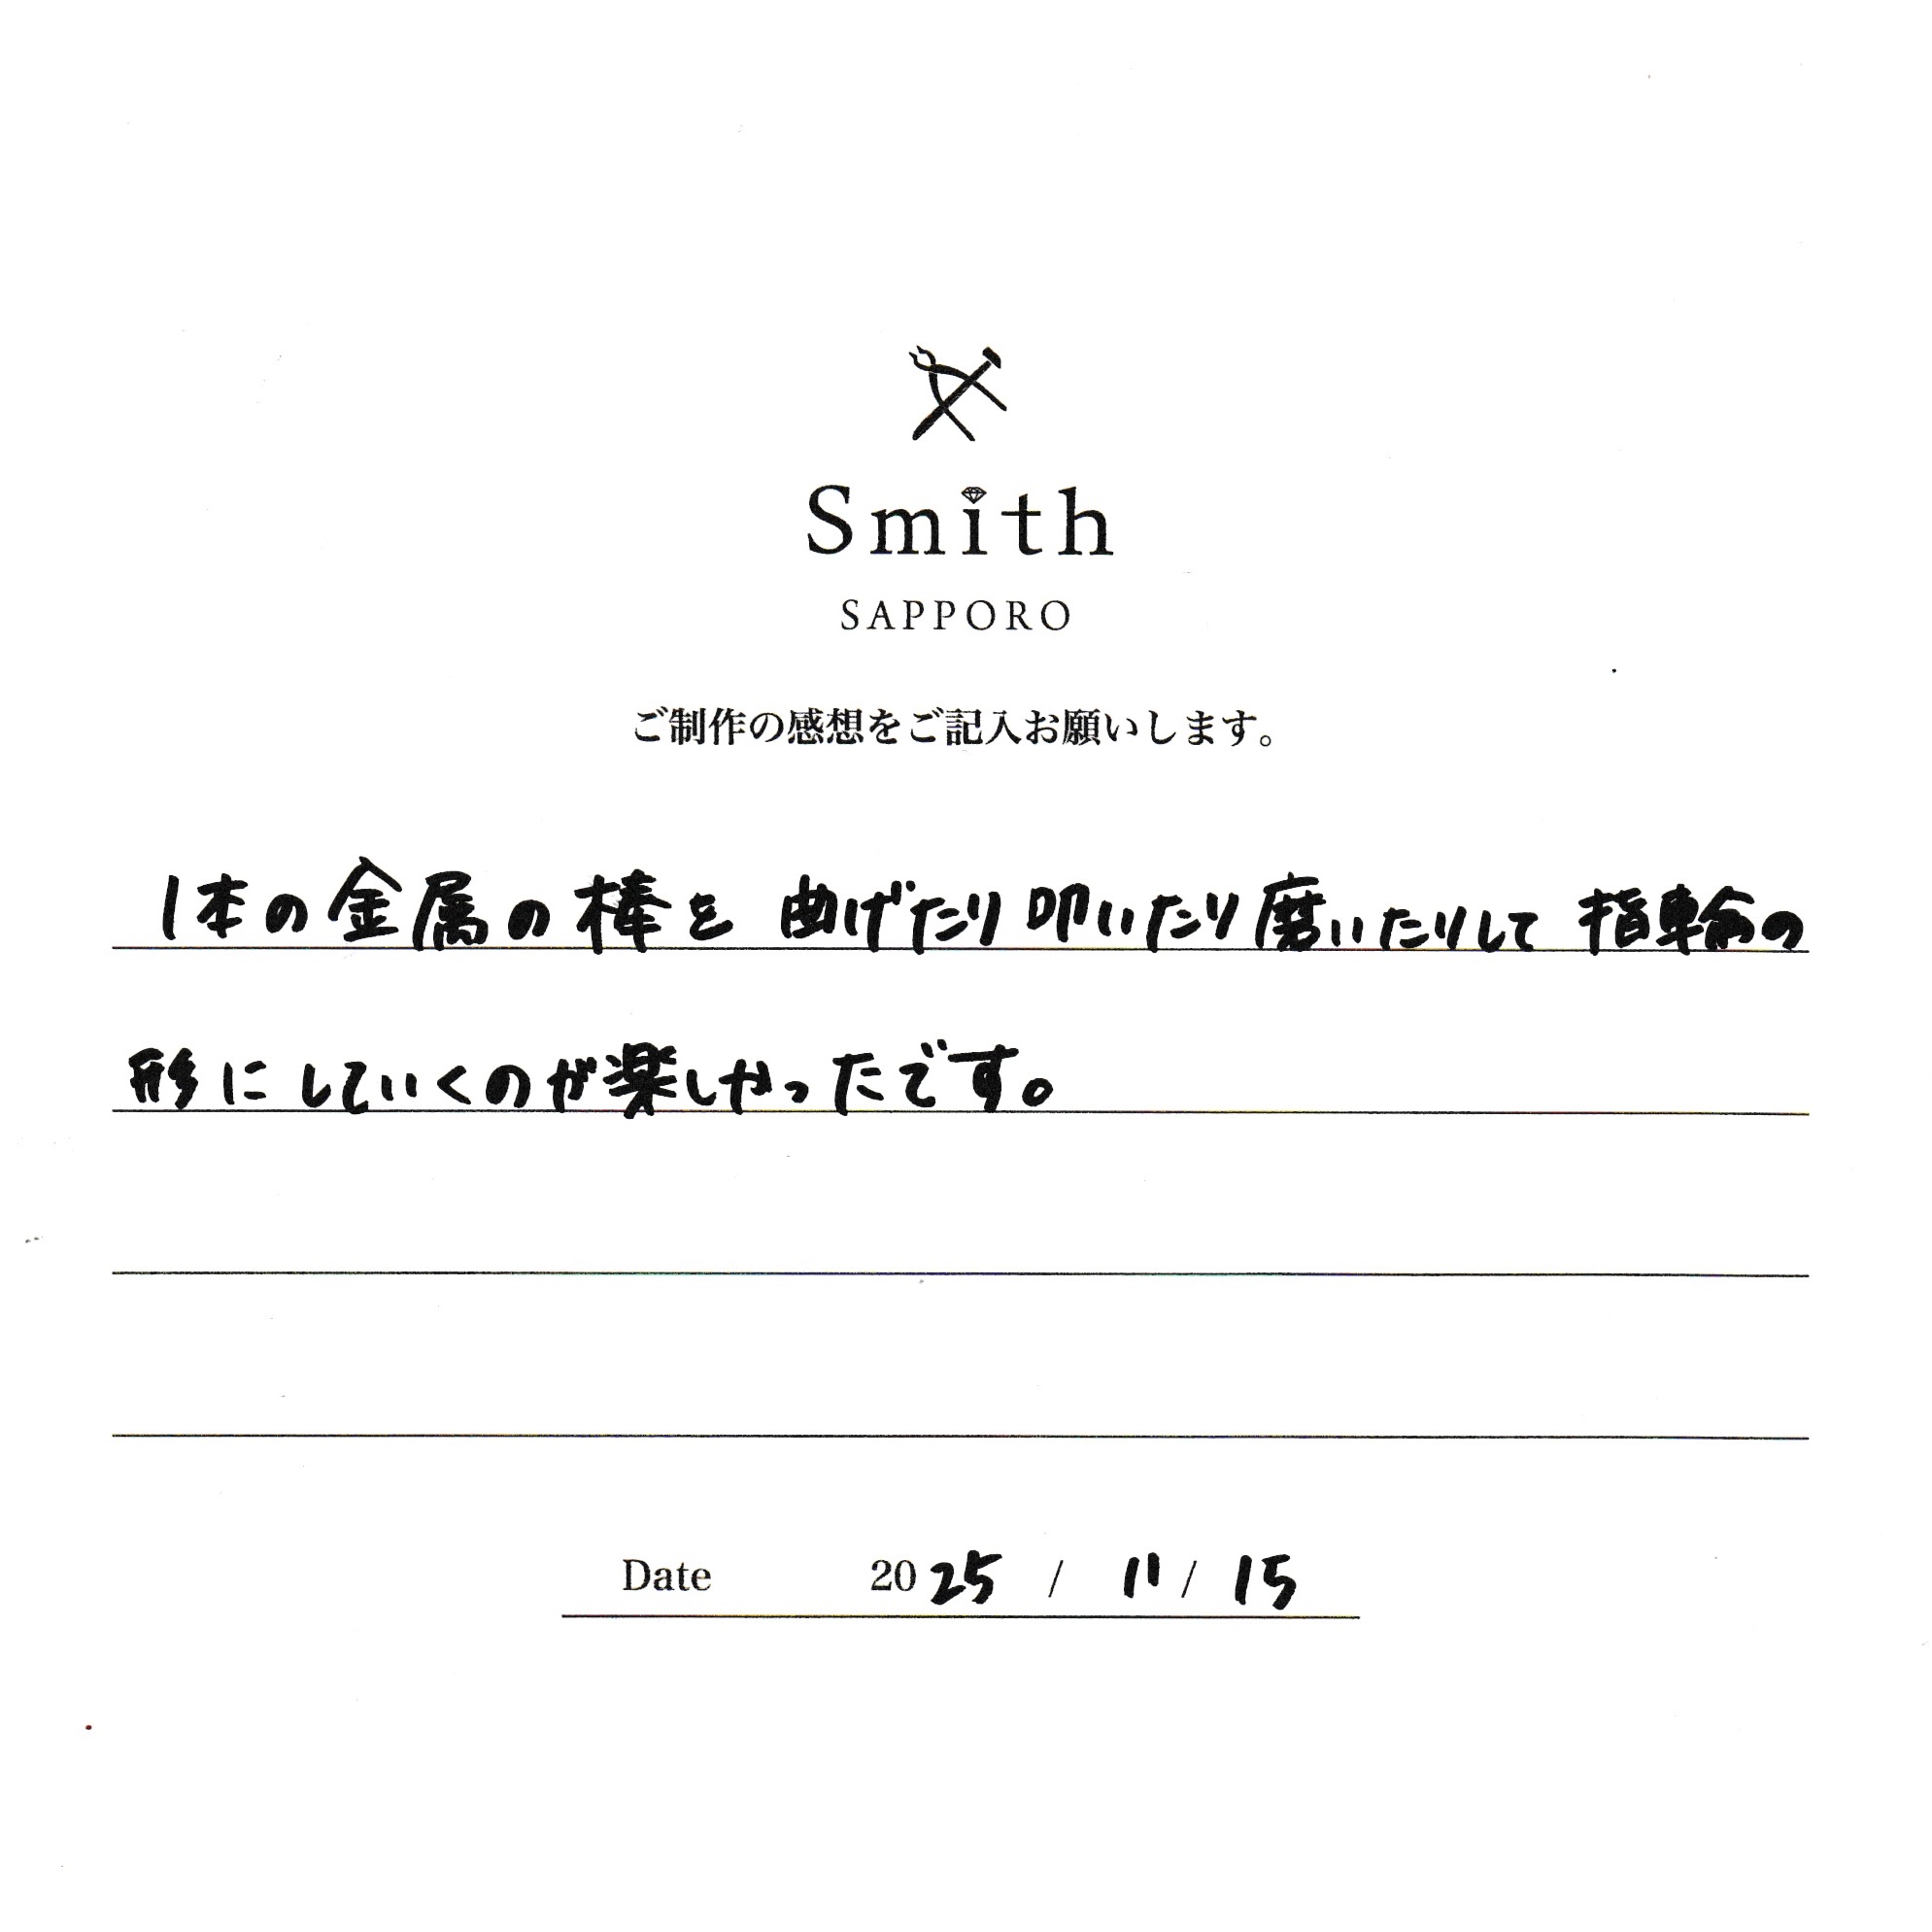 Smith
SAPPORO
ご制作の感想をご記入お願いします。
1本の金属の棒を 曲げたり叩いたり磨いたりして 指輪の
形にしていくのが楽しかったです。
Date 2025 / 11 / 15